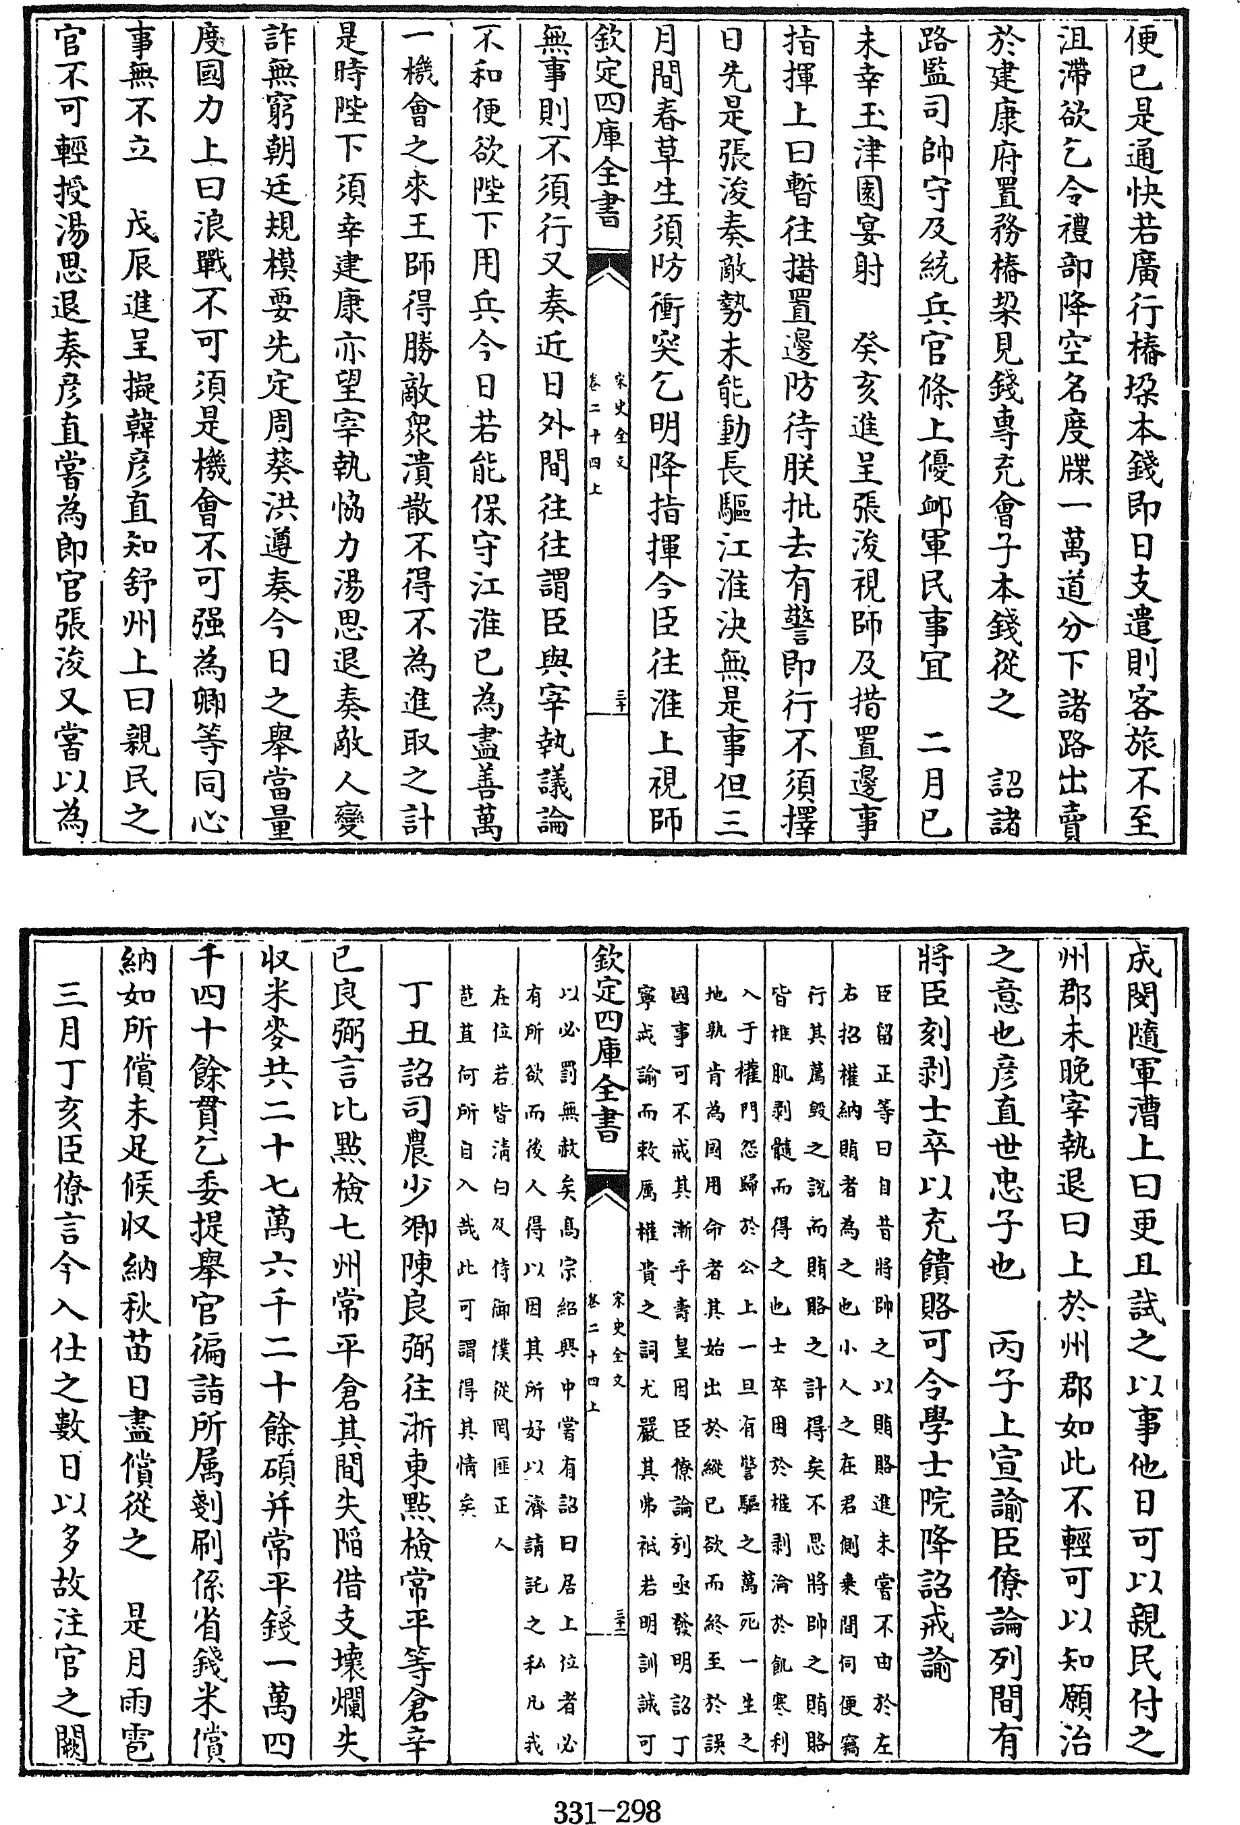 便已是通快若廣行樁垜本錢即日支遣則客旅不至
沮滯欲乞令禮部降空名度牒一萬道分下諸路出賣
於建康府置務樁垜見錢專充會子本錢從之　詔諸
路監司帥守及統兵官條上優䘏軍民事宜　二月已
未幸玉津園宴射　癸亥進呈張浚視師及措置邊事
指揮上曰暫往措置邊防待朕批去有警即行不須擇
日先是張浚奏敵勢未能動長驅江淮決無是事但三
月間春草生須防衝突乞明降指揮令臣往淮上視師
欽定四庫全書
宋史全文
卷二十四上
三十
無事則不須行又奏近日外間往往謂臣與宰執議論
不和便欲陛下用兵今日若能保守江淮已為盡善萬
一機會之來王師得勝敵衆潰散不得不為進取之計
是時陛下須幸建康亦望宰執恊力湯思退奏敵人變
詐無窮朝廷規模要先定周葵洪遵奏今日之舉當量
度國力上曰浪戰不可須是機會不可强為卿等同心
事無不立　戊辰進呈擬韓彦直知舒州上曰親民之
官不可輕授湯思退奏彦直嘗為郎官張浚又嘗以為
成閔隨軍漕上曰更且試之以事他日可以親民付之
州郡未晚宰執退曰上於州郡如此不輕可以知願治
之意也彦直世忠子也　丙子上宣諭臣僚論列間有
將臣刻剥士卒以充饋賂可令學士院降詔戒諭
臣留正等曰自昔將帥之以賄賂進未嘗不由於左
右招權納賄者為之也小人之在君側乗間伺便竊
行其薦毀之説而賄賂之計得矣不思將帥之賄賂
皆椎肌剥髓而得之也士卒困於椎剥淪於飢寒利
入于權門怨歸於公上一旦有警驅之萬死一生之
地孰肯為國用命者其始出於縱已欲而終至於誤
國事可不戒其漸乎壽皇因臣僚論列亟發明詔丁
寧戒諭而敕厲權貴之詞尤嚴其弗祗若明訓誡可
欽定四庫全書
宋史全文
卷二十四上
三十一
以必罰無赦矣高宗紹興中嘗有詔曰居上位者必
有所欲而後人得以因其所好以濟請託之私凡我
在位若皆清白及侍御僕從罔匪正人
苞苴何所自入哉此可謂得其情矣
丁丑詔司農少卿陳良弼往浙東點檢常平等倉辛
已良弼言比點檢七州常平倉其間失陷借支壊爛失
收米麥共二十七萬六千二十餘碩并常平錢一萬四
千四十餘貫乞委提舉官徧詣所属刬刷係省錢米償
納如所償未足候収納秋苗日盡償從之　是月雨雹
三月丁亥臣僚言今入仕之數日以多故注官之闕
331-298